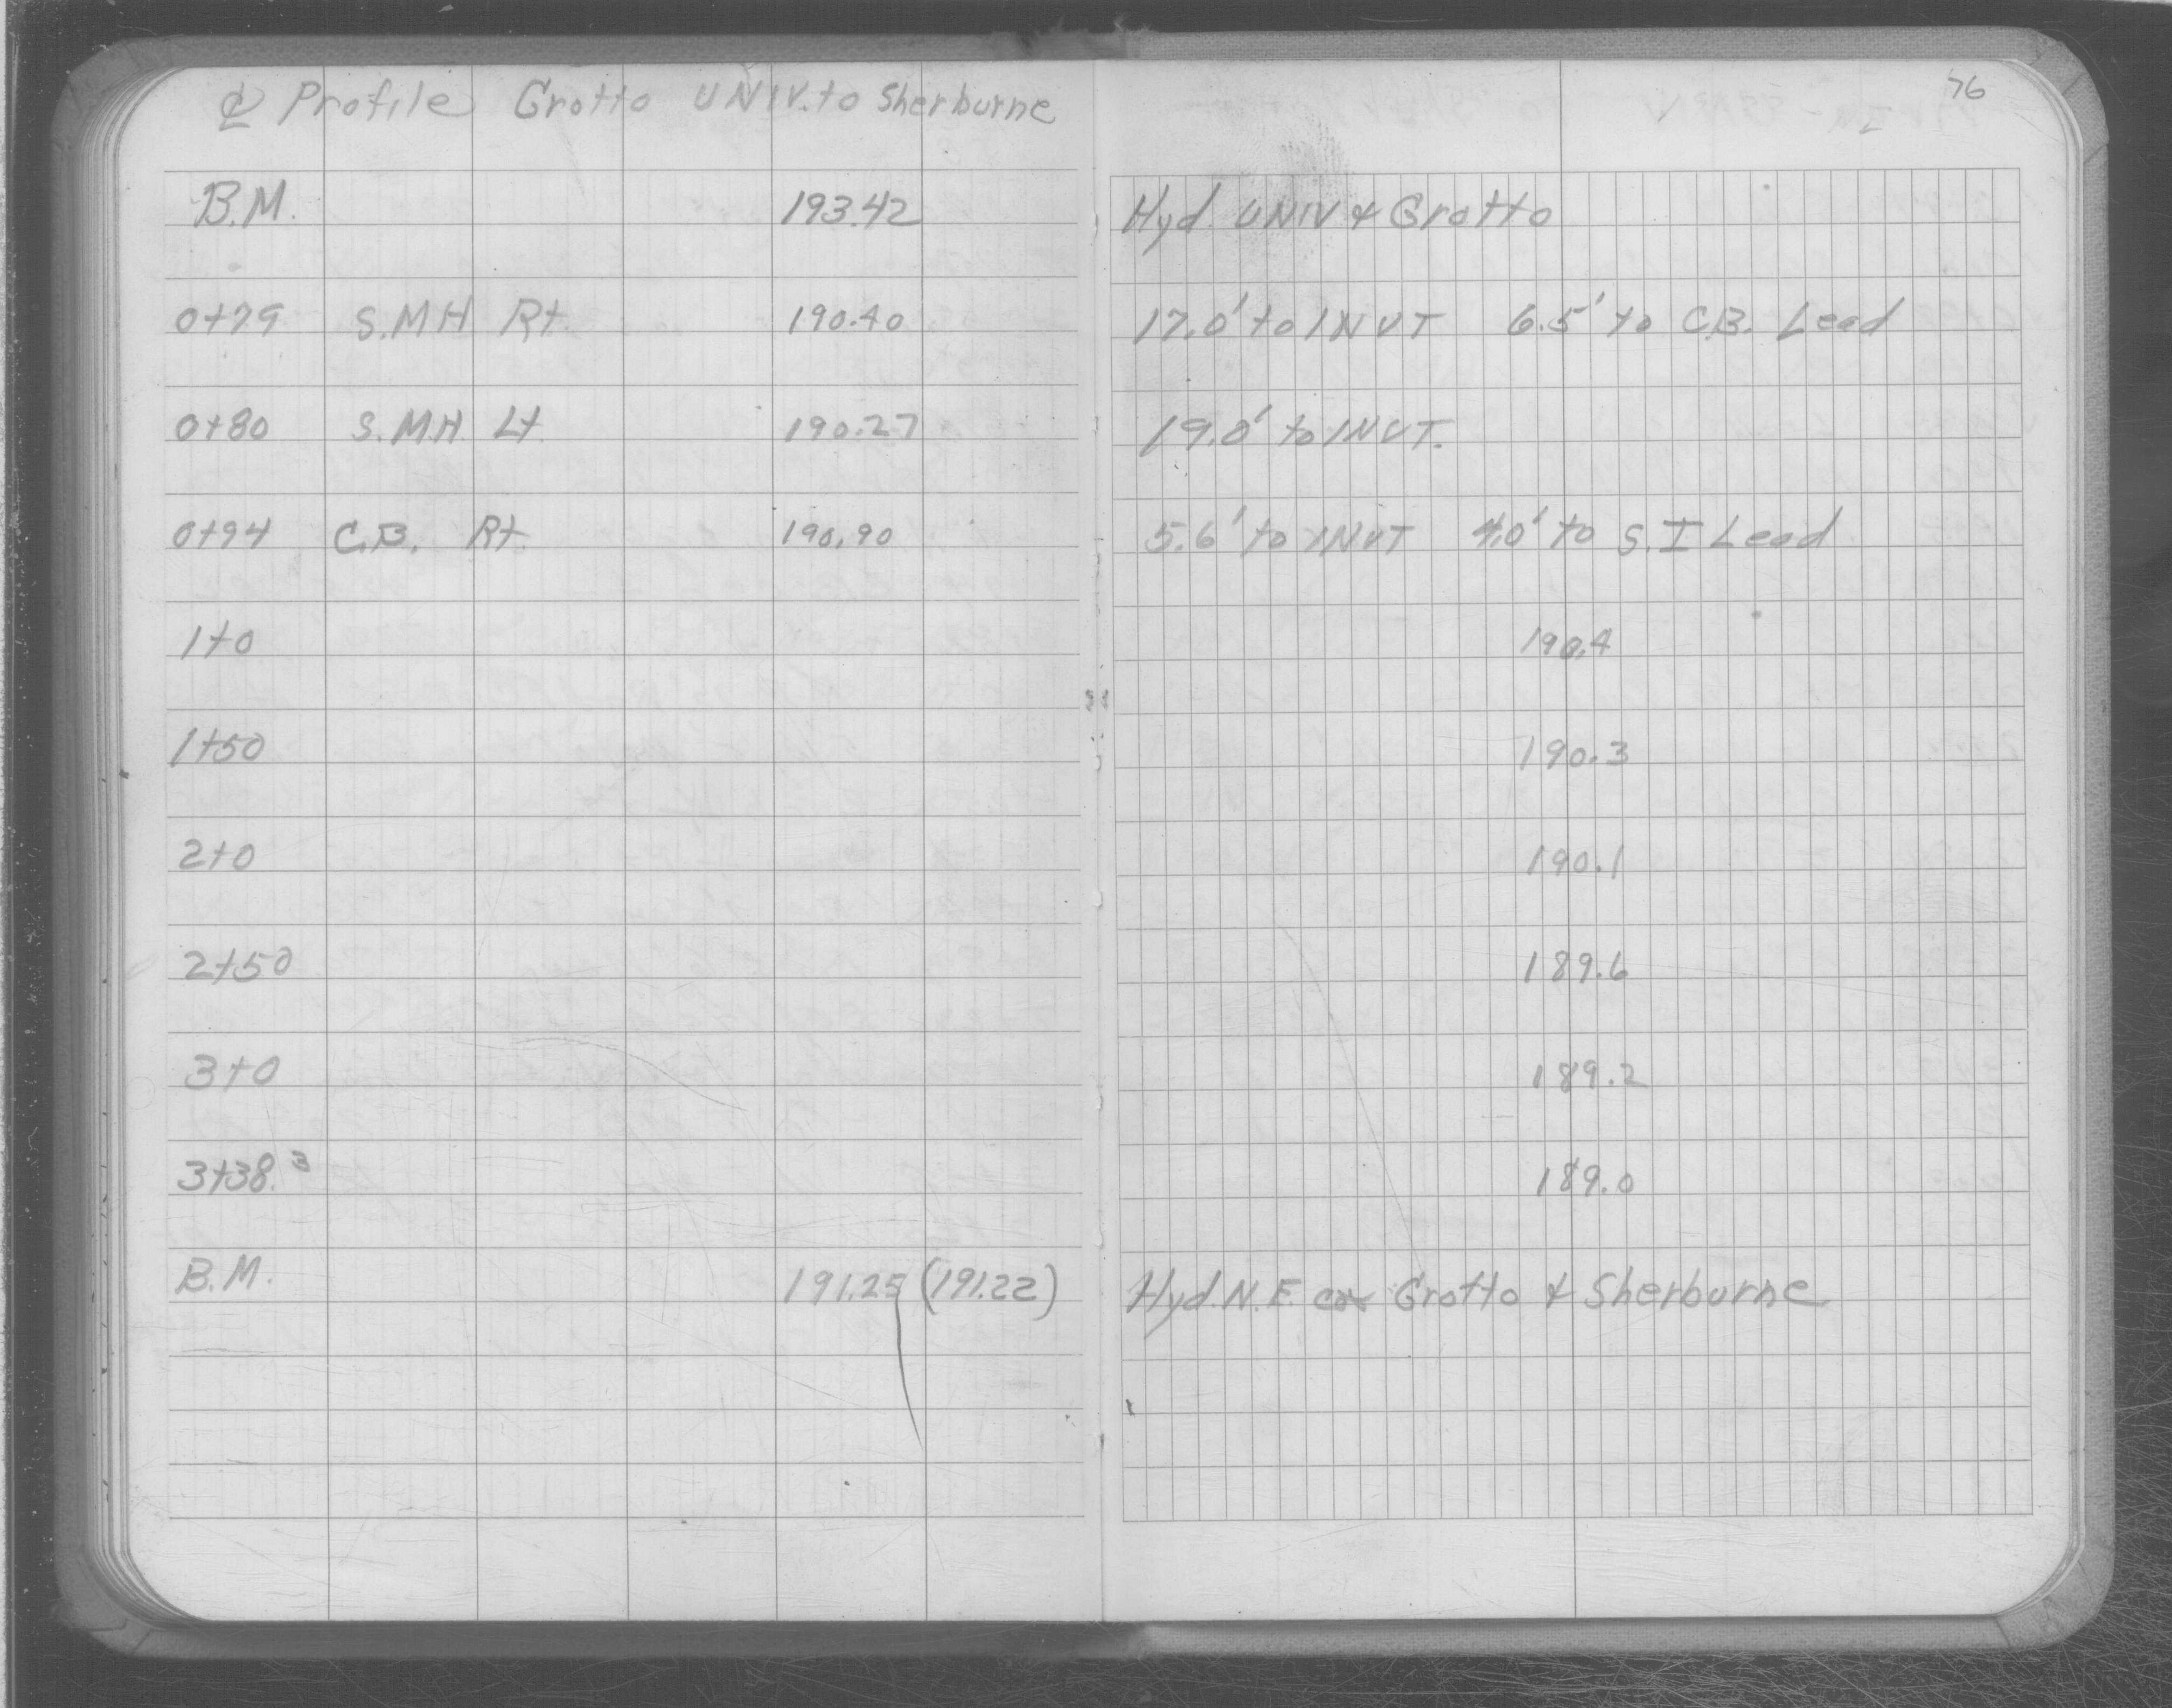 76
℄ Profile Grotto UNIV. to Sherburne
B.M. 193.42 Hyd. UNIV & Grotto
0+79 S.MH Rt. 190.40 17.0' to INVT 6.5' to C.B. Lead
0+80 S.MH Lt. 190.27 19.0' to INVT.
0+94 C.B. Rt. 190.90 5.6' to INVT 4.0' to S.I Lead
1+0 190.4
1+50 190.3
2+0 190.1
2+50 189.6
3+0 189.2
3+38.3 189.0
B.M. 191.25 (191.22) Hyd. N.E. cor Grotto & Sherburne